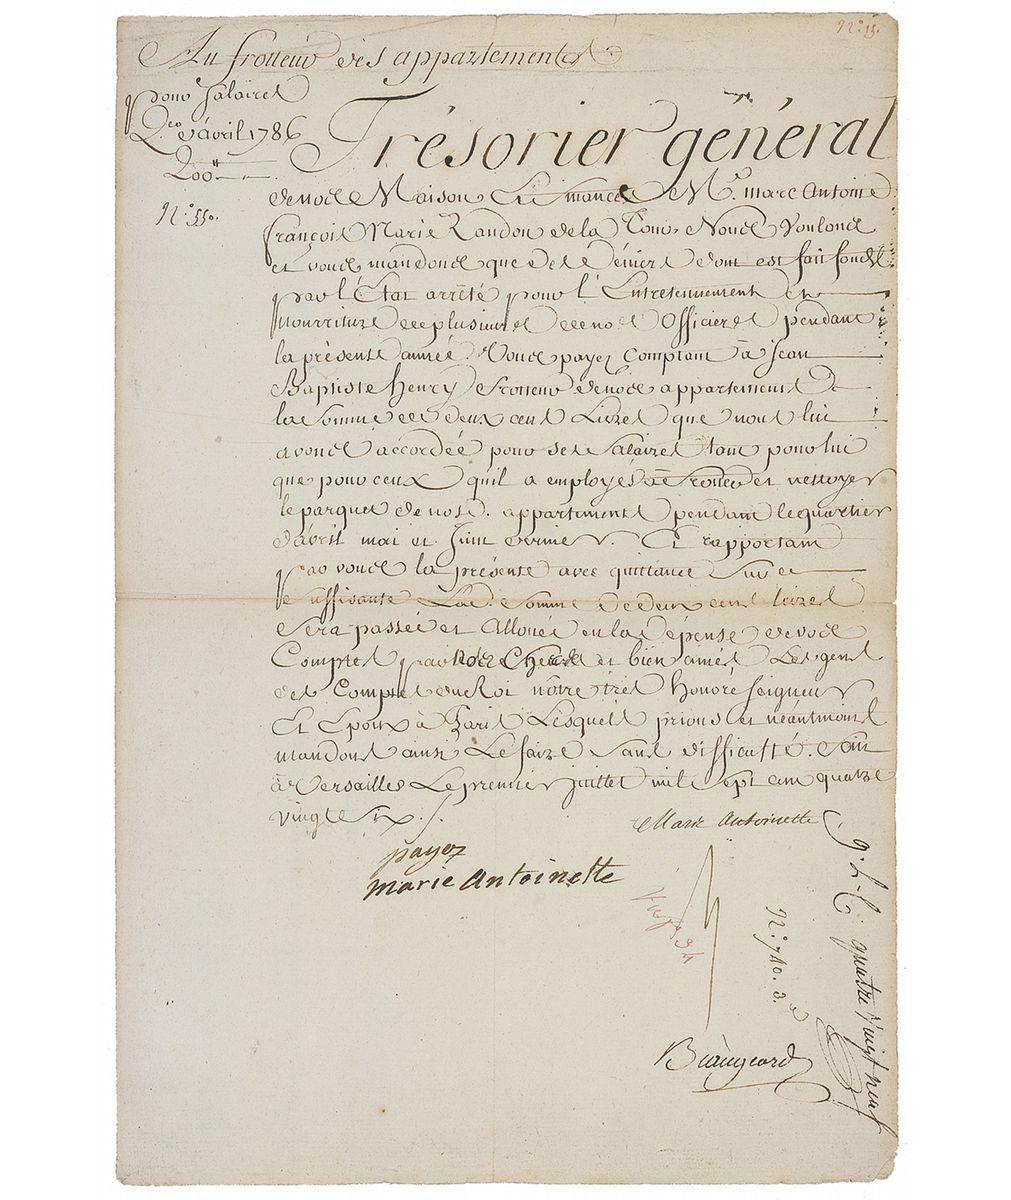 N.° 15.
Au frotteur des appartements
pour Salaires
Q.er d'avril 1786
200ᵗᵗ
N.° 550.
Trésorier général
de nos Maison et finances M.e marc Antoine
françois Marie Randon de la Tour, Nous Voulons
et vous mandons que des Deniers dont est fait fonds
par l'État arrêté pour l'Entretennement et
nourriture de plusieurs de nos Officiers pendant
la présente année Vous payez Comptant à Jean
Baptiste henry frotteur de nos appartements
la Somme de deux cent Livres que nous lui
avons accordée pour ses Salaires tant pour lui
que pour ceux qu'il a employés à frotter et nettoyer
le parquet de nosd. appartements pendant le quartier
d'avril mai et Juin dernier. Et rapportant
par vous la présente avec quittance Sur ce
Suffisante Lad. Somme de deux cent livres
Sera passée et Allouée en la Dépense de vos
Comptes par nos Chers et bien amés Les gens
des Comptes du Roi notre très honoré Seigneur
Et Epoux à Paris Lesquels prions et néantmoins
mandons ainsi Le faire Sans difficulté. Fait
à Versailles Le premier juillet mil Sept cent quatre
vingt Six ./.
Marie Antoinette
payez
marie Antoinette
N.° 740. 3.e
quatre Vingt neuf
Beaugeard